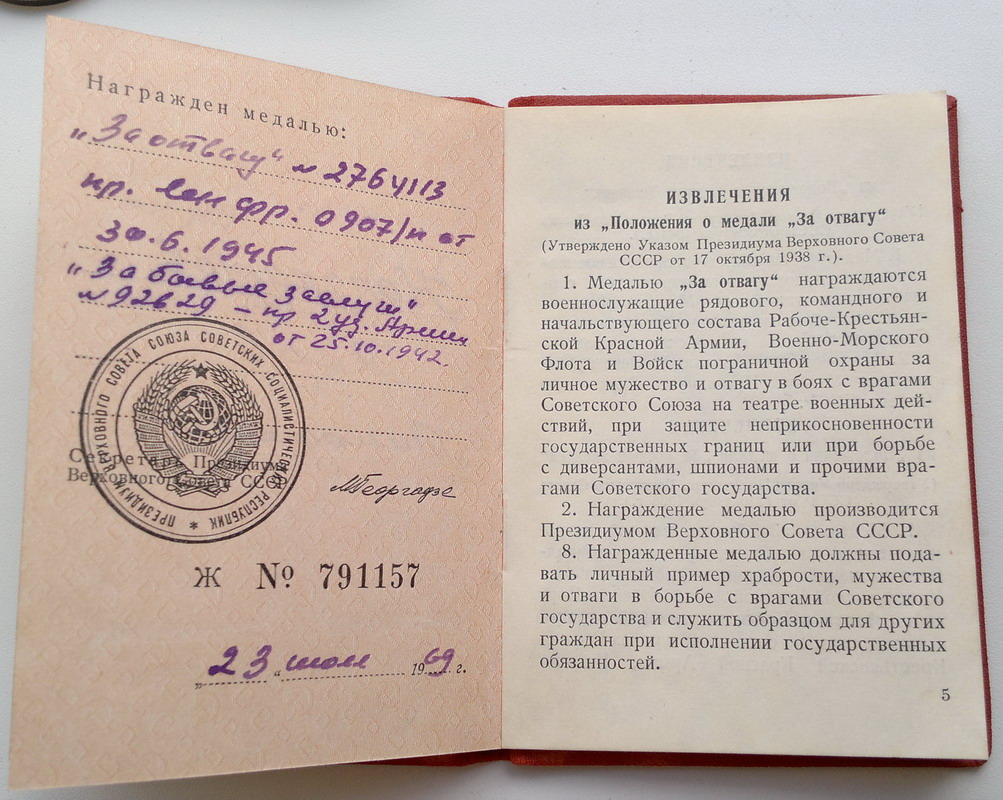 Награжден медалью:
„За отвагу" № 2764113
пр. Лен фр. 0907/н от
30.6.1945
„За боевые заслуги"
№ 92629 – пр 2 уд. Армии
от 25.10.1942.
ПРЕЗИДИУМ ВЕРХОВНОГО СОВЕТА СОЮЗА СОВЕТСКИХ СОЦИАЛИСТИЧЕСКИХ РЕСПУБЛИК *
Секретарь Президиума
Верховного Совета СССР
МГеоргадзе
Ж № 791157
„23" июля 1969 г.
ИЗВЛЕЧЕНИЯ
из „Положения о медали „За отвагу"
(Утверждено Указом Президиума Верховного Совета
СССР от 17 октября 1938 г.).
1. Медалью „За отвагу" награждаются
военнослужащие рядового, командного и
начальствующего состава Рабоче-Крестьян-
ской Красной Армии, Военно-Морского
Флота и Войск пограничной охраны за
личное мужество и отвагу в боях с врагами
Советского Союза на театре военных дей-
ствий, при защите неприкосновенности
государственных границ или при борьбе
с диверсантами, шпионами и прочими вра-
гами Советского государства.
2. Награждение медалью производится
Президиумом Верховного Совета СССР.
8. Награжденные медалью должны пода-
вать личный пример храбрости, мужества
и отваги в борьбе с врагами Советского
государства и служить образцом для других
граждан при исполнении государственных
обязанностей.
5